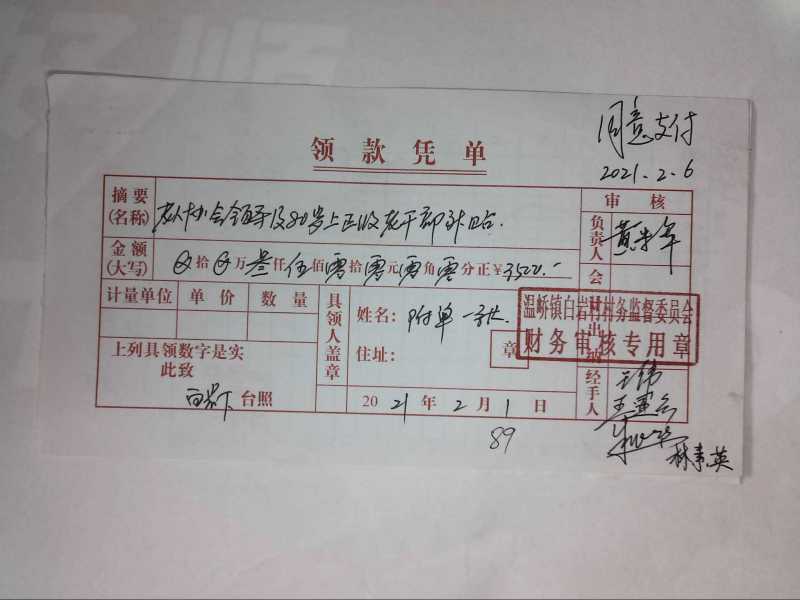 同意支付
2021.2.6
领款凭单
摘要(名称) 老人协会领导及80岁上
审核
负责人
金额(大写) ⊗拾⊗万叁仟伍佰零拾零元零角零分正¥3500.-
会计
计量单位 单价 数量
具领人盖章
姓名: 附单一张.
住址:
章
温峤镇白岩村村务监督委员会
财务审核专用章
上列具领数字是实
此致
台照
2021年2月1日
出纳
经手人
王伟
林素英
89